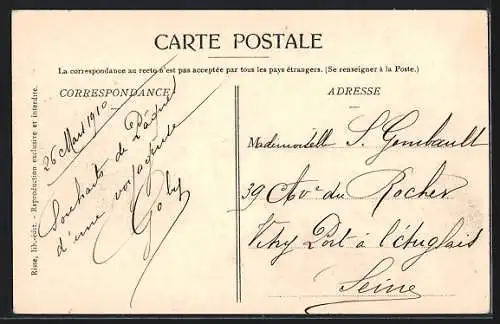 CARTE POSTALE
La correspondance au recto n'est pas acceptée par tous les pays étrangers. (Se renseigner à la Poste.)
CORRESPONDANCE
26 Mars 1910
Souhaits de Pâques
d'une voyageuse
Gaby
Risse, lib.-édit. - Reproduction exclusive et interdite.
ADRESSE
Mademoiselle S. Gombault
39 Av. du Rocher
Vitry Port à l'Anglais
Seine